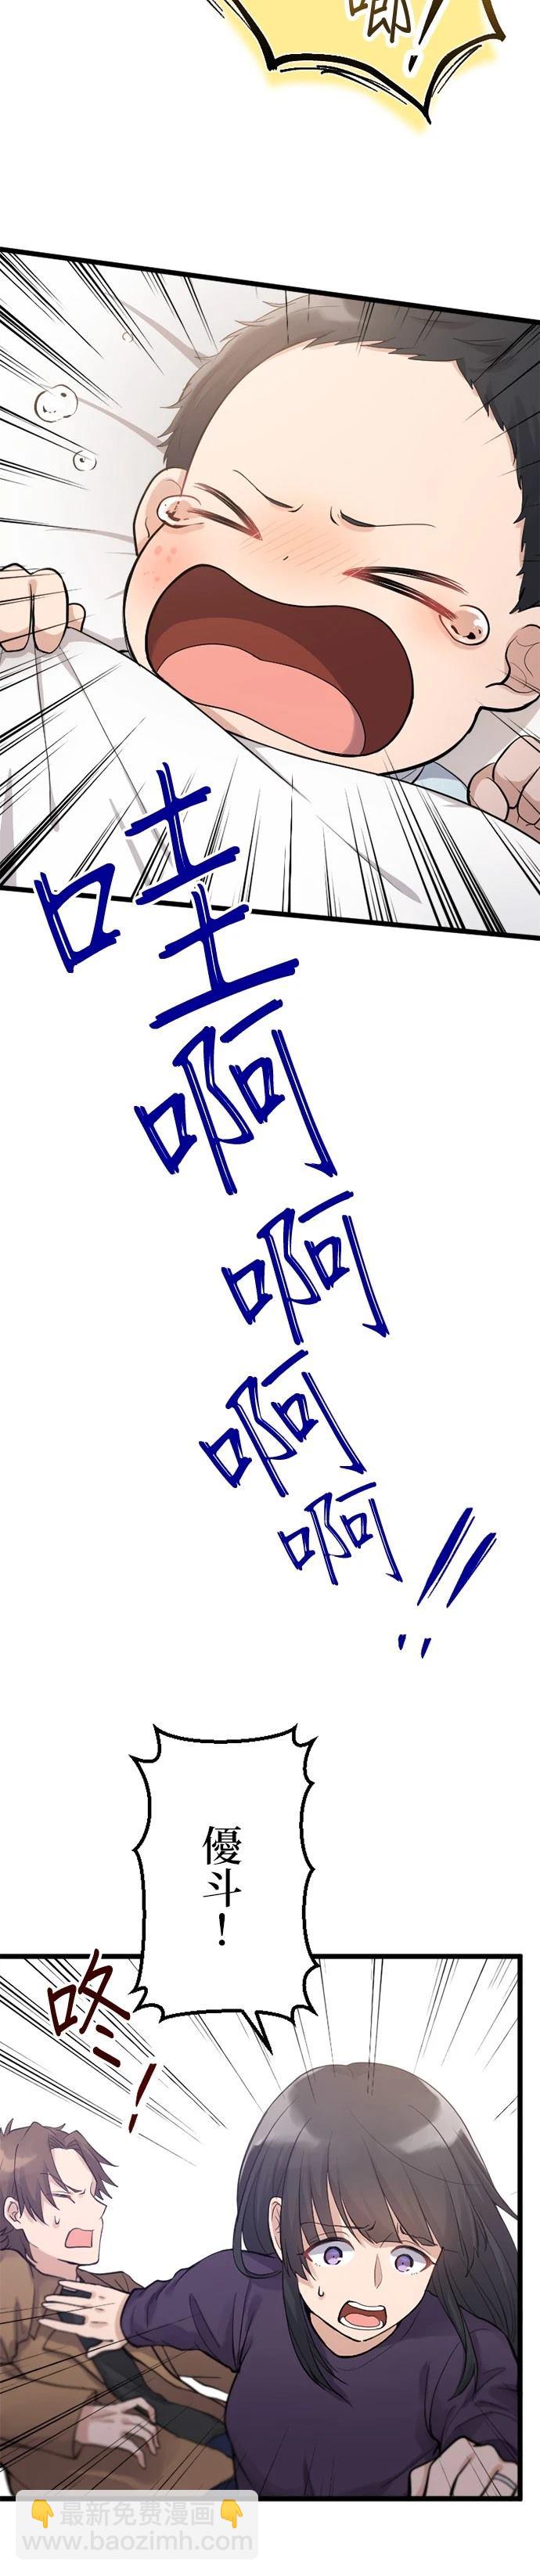 唧！
哇啊啊啊啊!!
優斗！
咚！
👇最新免費漫畫👇
www.baozimh.com